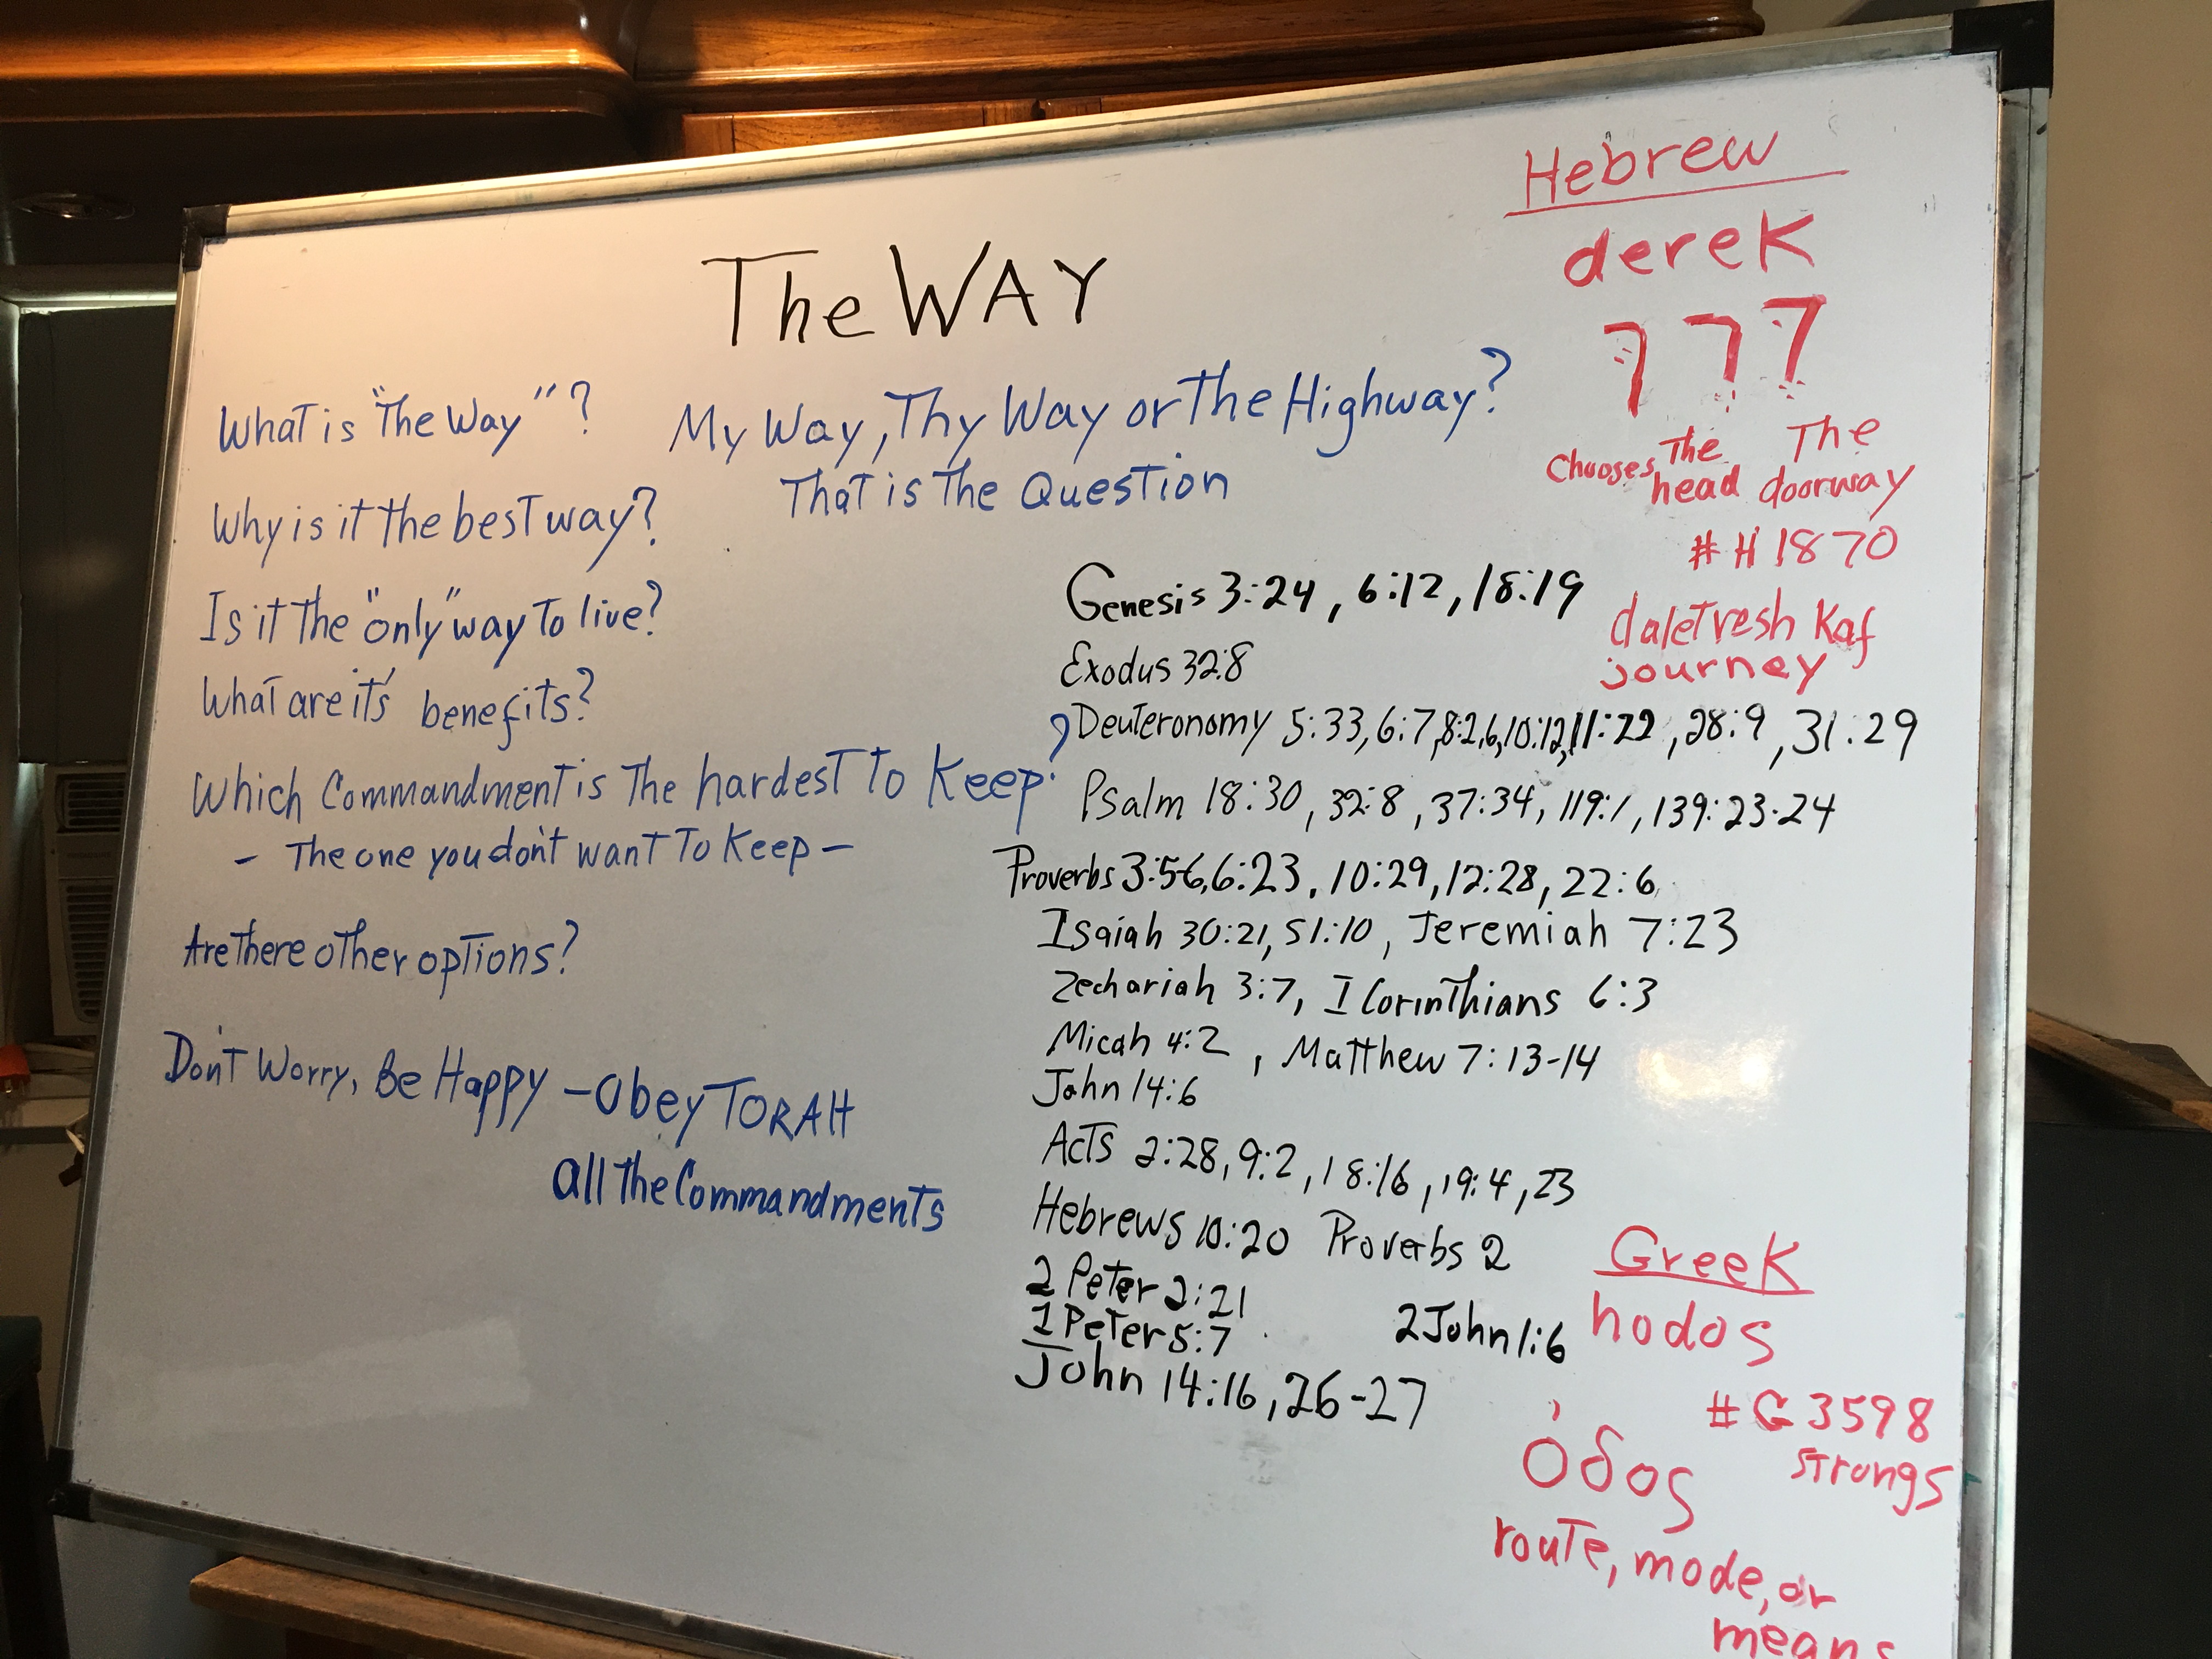 The WAY
What is "The Way"?
My Way, Thy Way or The Highway?
That is The Question
Why is it the best way?
Is it The "only" way To live?
What are it's benefits?
Which Commandment is The hardest To Keep?
- The one you don't want To Keep -
Are There other options?
Don't Worry, Be Happy - Obey TORAH
all The Commandments
Genesis 3:24, 6:12, 18:19
Exodus 32:8
Deuteronomy 5:33, 6:7, 8:2,6, 10:12, 11:22, 28:9, 31:29
Psalm 18:30, 32:8, 37:34, 119:1, 139:23-24
Proverbs 3:5-6, 6:23, 10:29, 12:28, 22:6
Isaiah 30:21, 51:10, Jeremiah 7:23
Zechariah 3:7, I Corinthians 6:3
Micah 4:2, Matthew 7:13-14
John 14:6
Acts 2:28, 9:2, 18:16, 19:4, 23
Hebrews 10:20 Proverbs 2
2 Peter 2:21
1 Peter 5:7
2 John 1:6
John 14:16, 26-27
Hebrew
derek
דרך
Chooses The head The doorway
#H1870
dalet resh Kaf
journey
Greek
hodos
#G3598
strongs
ὁδος
route, mode, or
means